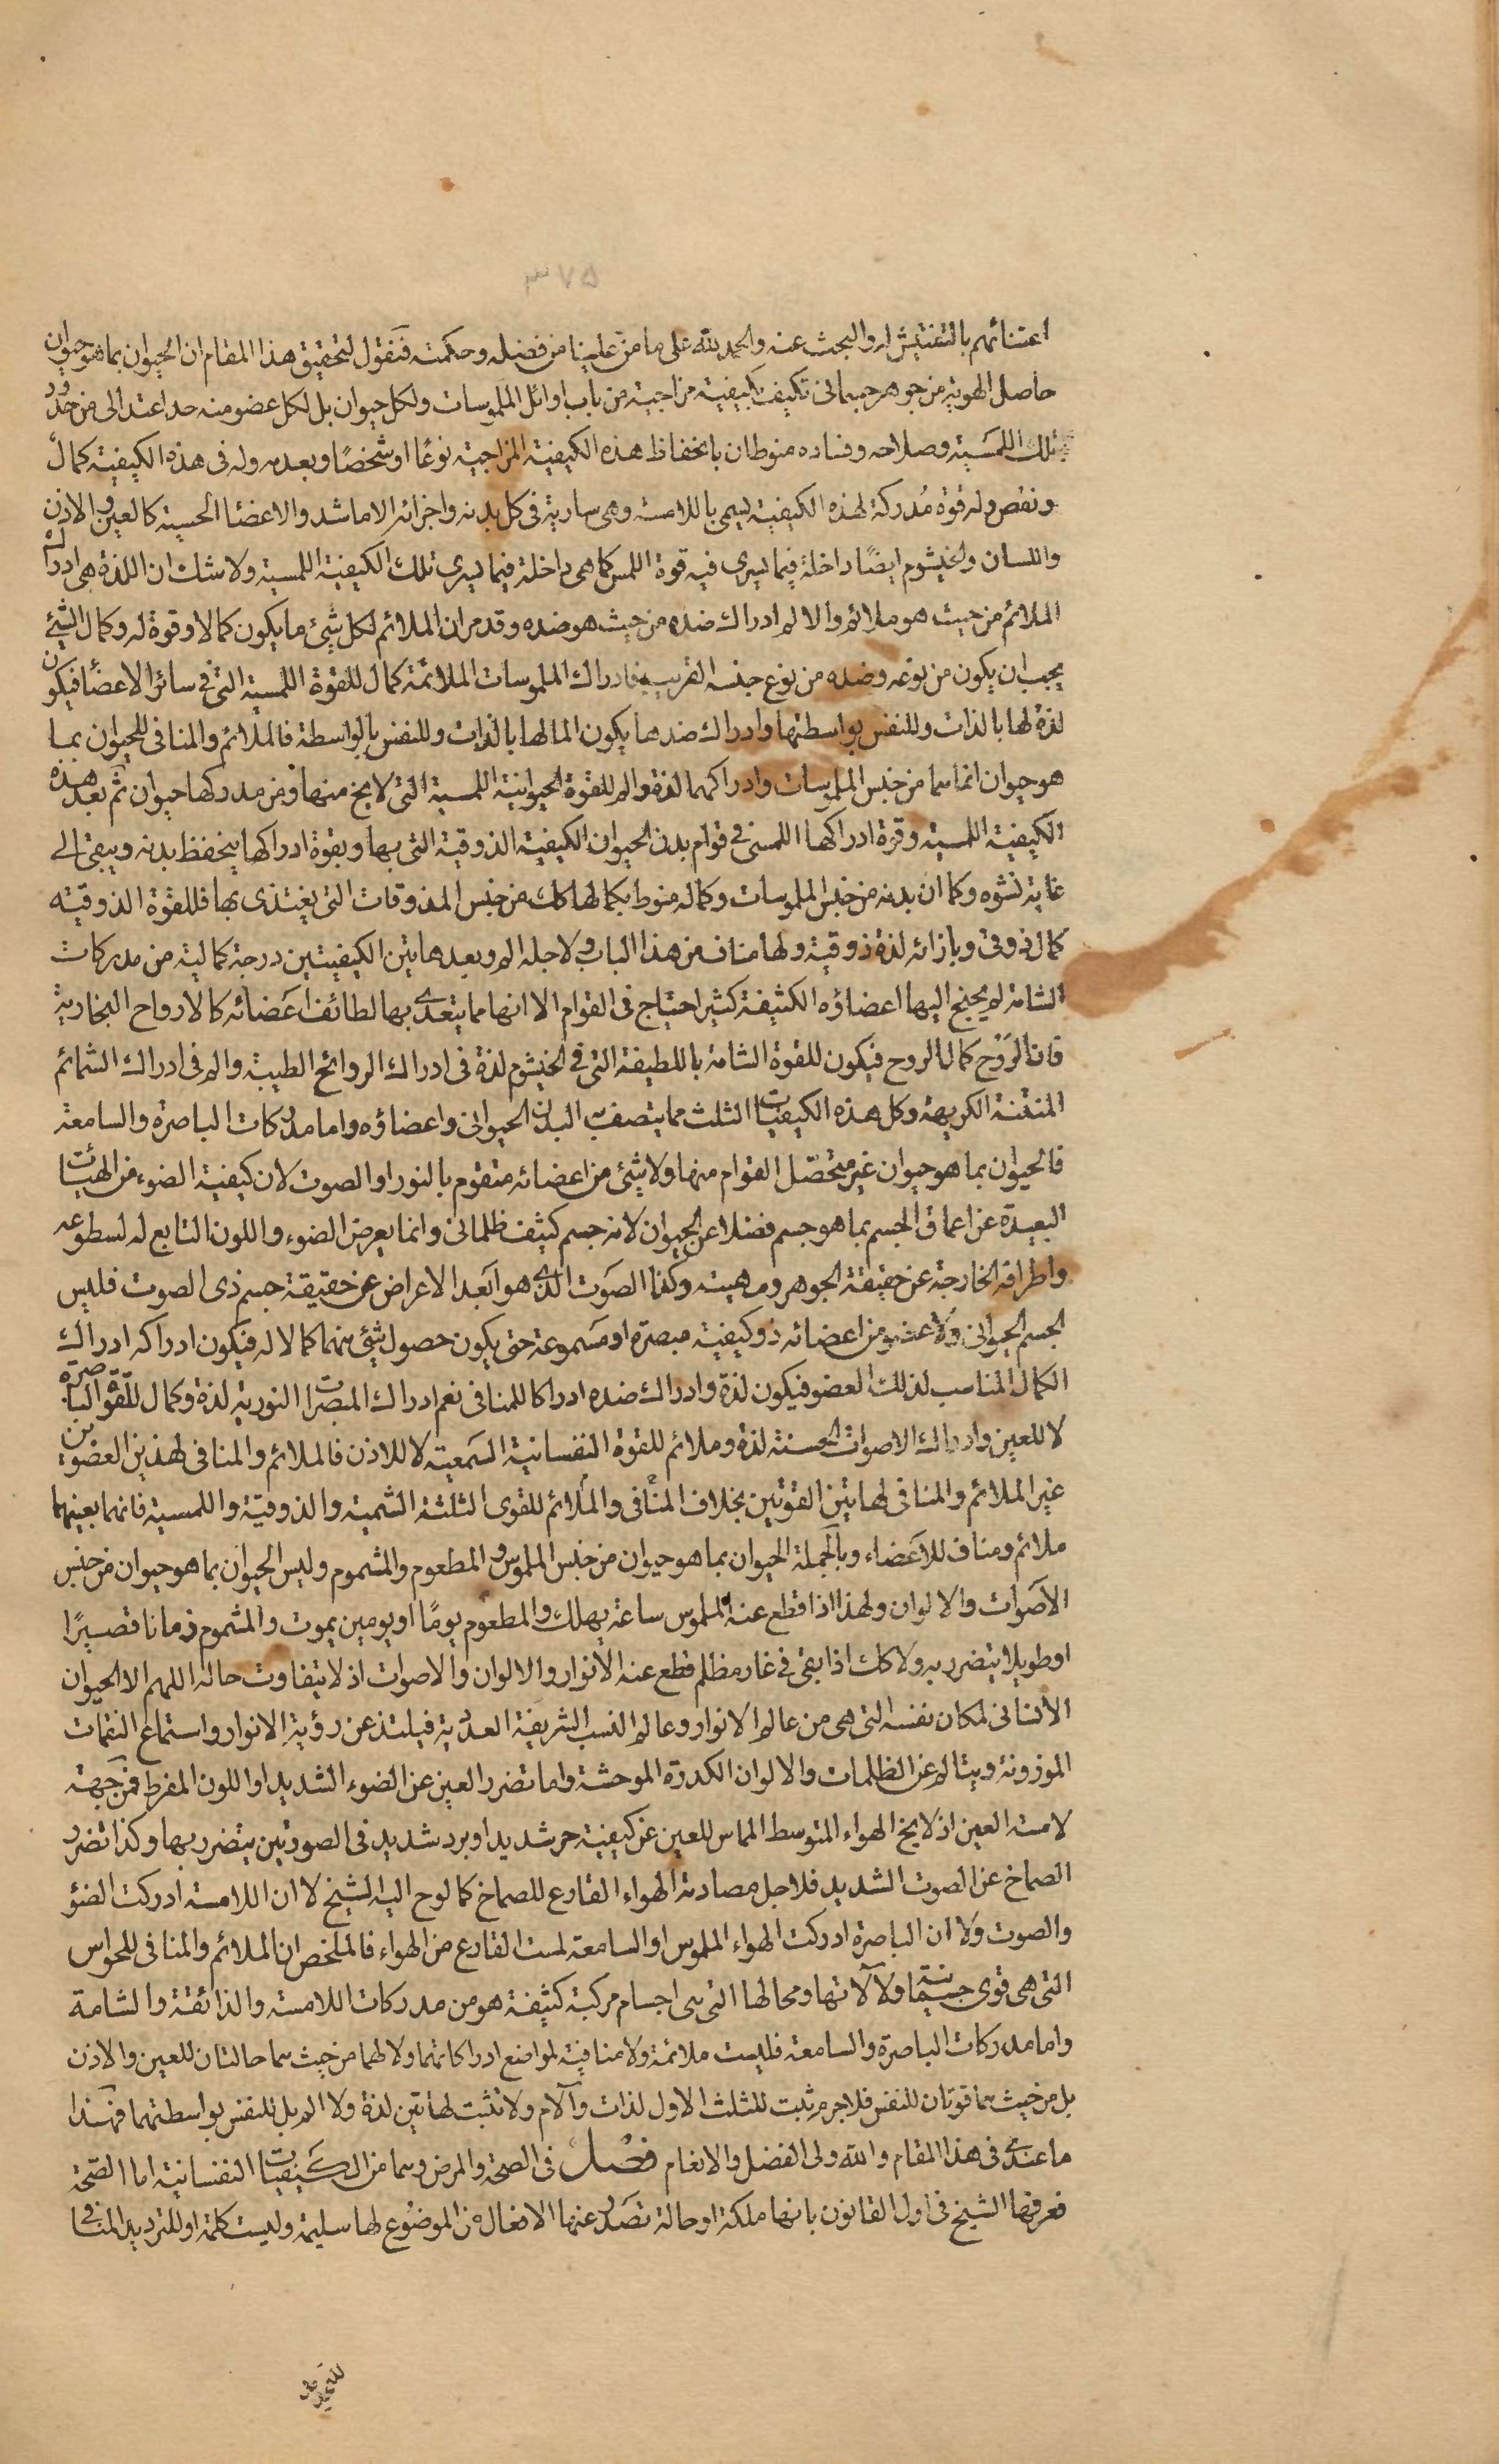 ٣٧٥
اعتنائهم بالتفتيش او البحث عنه والحمد لله على ما من علينا من فضله وحكمته فنقول لتحقيق هذا المقام ان الحيوان بما هو حيوان
حاصل الهوية من جوهر جسمانى تكيف بكيفية مزاجية من باب اوائل الملموسات ولكل حيوان بل لكل عضو منه حد اعتدالى من حدود
تلك اللمسية وصلاحه وفساده منوطان بانحفاظ هذه الكيفية المزاجية نوعًا او شخصًا وبعدمه وله فى هذه الكيفية كمال
ونقص وله قوة مُدركة لهذه الكيفية يسمى باللامسة وهى سارية فى كل بدنه واجزائه الا ما شذ والاعضا الحسية كالعين والاذن
واللسان والخيشوم ايضًا داخلة فيما يسرى فيه قوة اللمس كما هى داخلة فيما يسرى تلك الكيفية اللمسية ولا شك ان اللذة هى ادراك
الملائم من حيث هو ملائم والالم ادراك ضده من حيث هو ضده وقد مر ان الملائم لكل شئ ما يكون كمالا وقوة له وكمال الشئ
يجب ان يكون من نوعه وضده من نوع جنسه القريب فادراك الملموسات الملائمة كمال للقوة اللمسية التى فى سائر الاعضا فيكون
لذة لها بالذات وللنفس بواسطتها وادراك ضدها يكون الما لها بالذات وللنفس بالواسطة فالملائم والمنافى للحيوان بما
هو حيوان انما هما من جنس الملموسات وادراكهما لذة والم للقوة الحيوانية اللمسية التى لا يخ منها ومن مدركها حيوان ثم بعد هذه
الكيفية اللمسية وقوة ادراكها اللمسى فى قوام بدن الحيوان الكيفية الذوقية التى بها وبقوة ادراكها ينحفظ بدنه ويبقى الى
غاية نشوه وكما ان بدنه من جنس الملموسات وكماله منوط بكمالها كك من جنس المذوقات التى يغتذى بها فللقوة الذوقية
كمال ذوقى وبازائه لذة ذوقية ولها مناف من هذا الباب ولاجله الم وبعد هاتين الكيفيتين درجة كمالية من مدركات
الشامة لم يحتج اليها اعضاؤه الكثيفة كثير احتياج فى القوام الا انها مما يتعدى بها لطائف اعضائه كالارواح البخارية
فان الرَوْح كمال الروح فيكون للقوة الشامة باللطيفة التى فى الخيشوم لذة فى ادراك الروائح الطيبة والم فى ادراك الشمائم
المنتنة الكريهة وكل هذه الكيفيات الثلث مما يتصف به البدن الحيوانى واعضاؤه واما مدركات الباصرة والسامعة
فالحيوان بما هو حيوان غير متحصّل القوام منها ولا شئ من اعضائه متقوم بالنور او الصوت لان كيفية الضوء من الهيئات
البعيدة عن اعماق الجسم بما هو جسم فضلا عن الحيوان لانه جسم كثيف ظلمانى وانما يعرض الضوء واللون التابع له لسطوحه
واطرافه الخارجة عن حقيقة الجوهر وماهيته وكذا الصَوت الذى هو ابَعد الاعراض عن حقيقة جسم ذى الصوت فليس
الجسم الحيوانى ولا عضو من اعضائه ذو كيفية مبصرة او مسَموعة حتى يكون حصول شئ منهما كمالا له فيكون ادراكه ادراك
الكمال المناسب لذلك العضو فيكون لذة وادراك ضده ادراكا للمنافى نعم ادراك المبصرات النورية لذة وكمال للقوة الباصرة
لا للعين وادراك الاصوات الحسنة لذة وملائم للقوة النفسانية السَمعية لا للاذن فالملائم والمنافى لهذين العضوين
غير الملائم والمنافى لهاتين القوتين بخلاف المنافى والملائم للقوى الثلثة الشمية والذوقيّة واللمسية فانهما بعينهما
ملائم ومناف للاَعَضاء وبالجملة الحيوان بما هو حيوان من جنس الملموس والمطعوم والمشموم وليس الحيوان بما هو حيوان من جنس
الاَصَوات والالوان ولهذا اذا قطع عنه الملموس ساعة يهلك والمطعوم يومًا او يومين يموت والمشموم زمانا قصيرًا
او طويلا يتضرر به ولا كك اذا بقى فى غار مظلم قطع عنه الانوار والالوان والاصوات اذ لا يتفاوت حاله اللهم الا الحيوان
الانسانى لمكان نفسه التى هى من عالم الانوار وعالم النسب الشريفة العددية فيلتذ عن رؤية الانوار واستماع النغمات
الموزونة ويتالم عن الظلمات والالوان الكدرة الموحشة واما تضرر العين عن الضوء الشديد او اللون المفرط فمن جهة
لامسة العين اذ لا يخ الهواء المتوسط المماس للعين عن كيفية حر شديد او برد شديد فى الصورتين يتضرر بها وكذا تضرر
الصماخ عن الصوت الشديد فلاجل مصادمة الهواء القارع للصماخ كما لوح اليه الشيخ لا ان اللامسة ادركت الضؤ
والصوت ولا ان الباصرة ادركت الهواء الملموس او السامعة لمست القارع من الهواء فالملخص ان الملائم والمنافى للحواس
التى هى قوى جسمانية اولا لآلاتها ومحالها التى هى اجسام مركبة كثيفة هو من مدركات اللامسة والذائقة والشامة
واما مدركات الباصرة والسامعة فليست ملائمة ولا منافية لمواضع ادراكاتهما ولا لهما من حيث هما حالتان للعين والاذن
بل من حيث هما قوتان للنفس فلاجرم ثبت للثلث الاول لذات وآلام ولا تثبت لهاتين لذة ولا الم بل للنفس بواسطتهما فهذا
ما عندى فى هذا المقام والله ولى الفضل والانعام فصل فى الصحة والمرض وهما من الكيفيات النفسانية اما الصّحة
فعرفها الشيخ فى اول القانون بانها ملكة او حالة تصَدر عنها الافعال من الموضوع لها سليمة وليست كلمة او للترديد المنافى
للتحديد